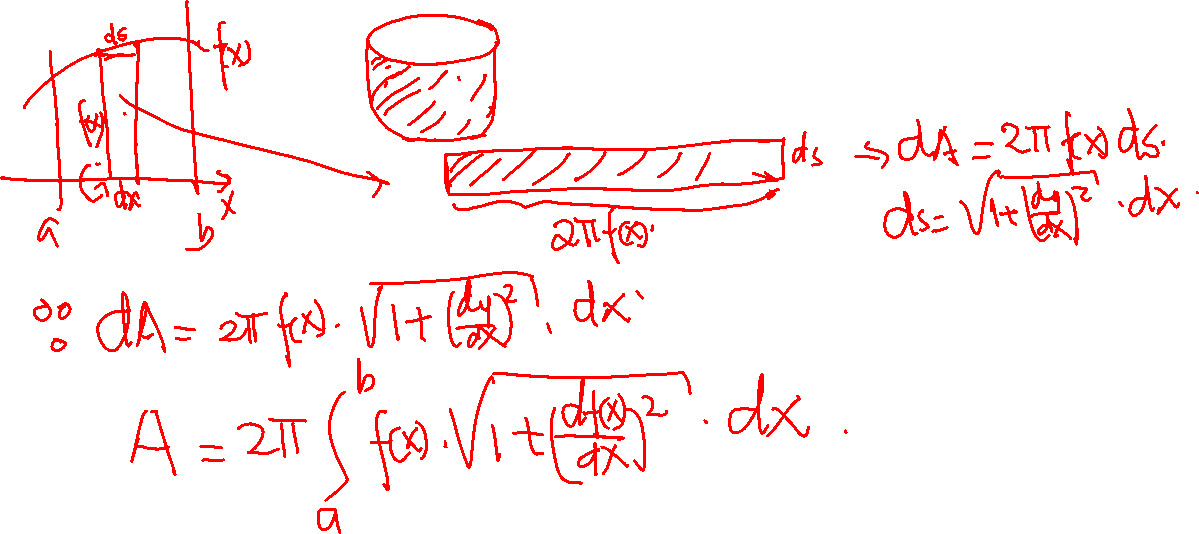 ds
f(x)
f(x)
dx
x
a
b
ds
2π f(x).
→ dA = 2π f(x) ds.
ds = √(1+(dy/dx)²) · dx
∵ dA = 2π f(x) · √(1+(dy/dx)²) · dx
A = 2π ∫ₐᵇ f(x) · √(1+(df(x)/dx)²) · dx .